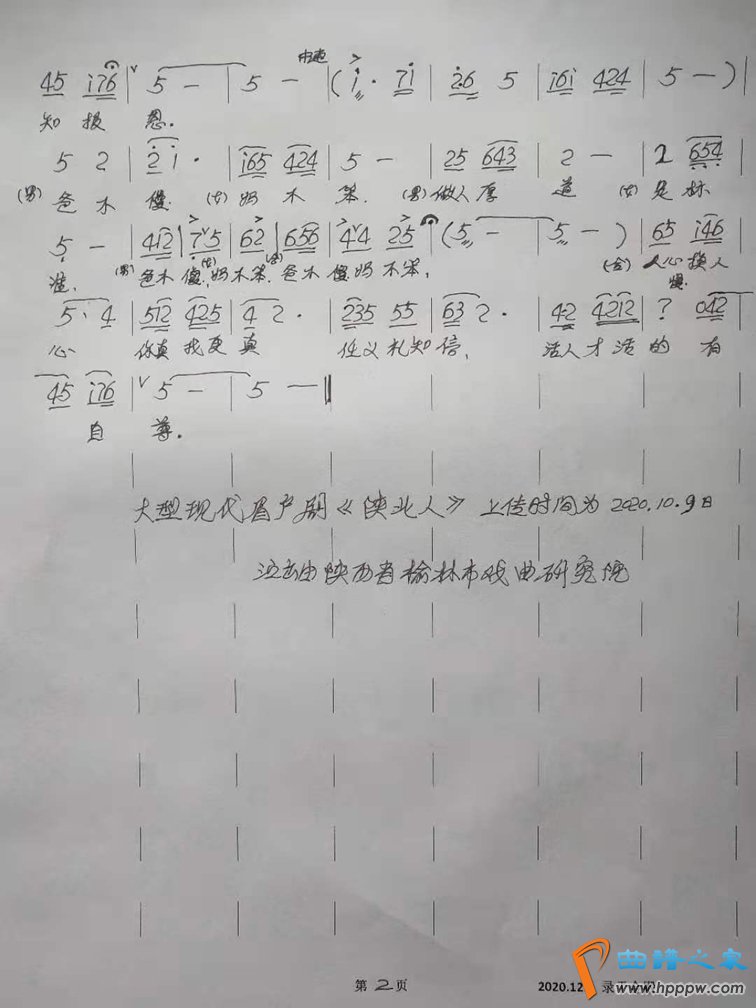 45 i76 v 5 — | 5 — 中速 | (i · 7i | 26 5 | i6i 424 | 5 — ) |
知报恩.
5 2 | 2 i · | i65 424 | 5 — | 25 643 | 2 — | 2 654 |
(男)爸不傻. (女)妈不笨. (男)做人厚道 (女)是标
5 — | 412 | 7 v 5 | 62 | 656 | 4 v 4 25 | (5 — | 5 — ) | 65 i46 |
准. (男)爸不傻,(女)妈不笨.(合)爸不傻妈不笨, (合)人心换人
5 · 4 | 512 425 | 4 2 · | 235 55 | 63 2 · | 42 4212 | ? 042 |
心 你真我更真 仁义礼知信, 活人才活的有
45 i76 | v 5 — | 5 — ‖
自尊.
大型现代眉户剧《陕北人》上传时间为2020.10.9日
演出由陕西省榆林市戏曲研究院
第2页
2020.12
曲谱之家
www.hppppw.com